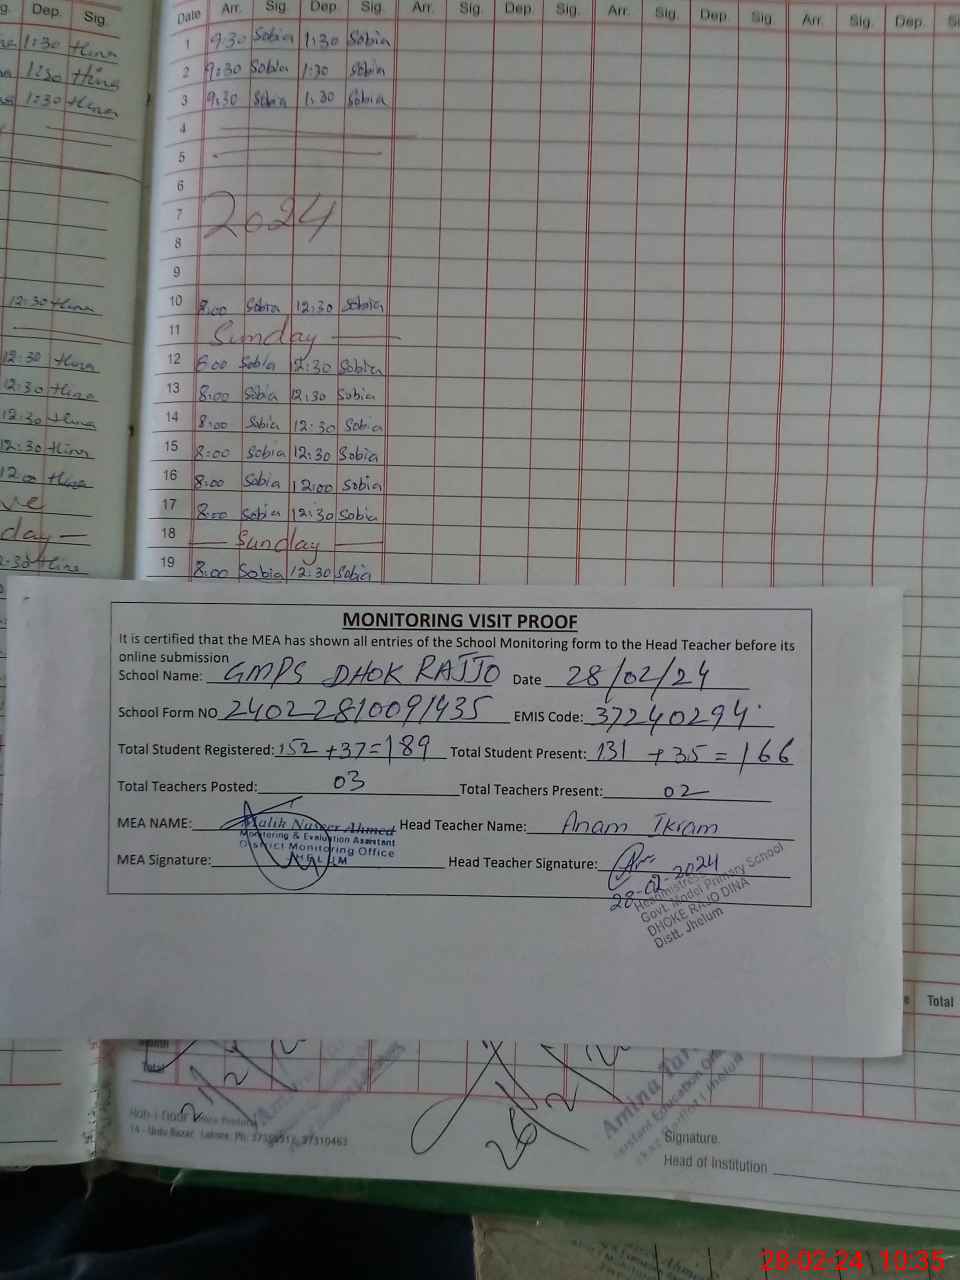 g. Dep. Sig.
1:30 Hina
1:30 Hina
1:30 Hina
12:30 Hina
12:30 Hina
12:30 Hina
12:30 Hina
12:30 Hina
12:00 Hina
ve
day
2:30 Hina
Date Arr. Sig. Dep. Sig. Arr. Sig. Dep. Sig. Arr. Sig. Dep. Sig. Arr. Sig. Dep.
1 9:30 Sobia 1:30 Sobia
2 9:30 Sobia 1:30 Sobia
3 9:30 Sobia 1:30 Sobia
4
5
6
7 2024
8
9
10 8:00 Sobia 12:30 Sobia
11 Sunday
12 8:00 Sobia 12:30 Sobia
13 8:00 Sobia 12:30 Sobia
14 8:00 Sobia 12:30 Sobia
15 8:00 Sobia 12:30 Sobia
16 8:00 Sobia 12:00 Sobia
17 8:00 Sobia 12:30 Sobia
18 Sunday
19 8:00 Sobia 12:30 Sobia
MONITORING VISIT PROOF
It is certified that the MEA has shown all entries of the School Monitoring form to the Head Teacher before its
online submission
School Name: GMPS DHOK RAJJO Date 28/02/24
School Form NO 24022810091435 EMIS Code: 37240294
Total Student Registered: 152 + 37 = 189 Total Student Present: 131 + 35 = 166
Total Teachers Posted: 03 Total Teachers Present: 02
MEA NAME: Malik Naseer Ahmed Head Teacher Name: Anam Ikram
Monitoring & Evaluation Assistant
District Monitoring Office
JHELUM
MEA Signature: Head Teacher Signature:
28-02-2024
Headmistress
Govt. Model Primary School
DHOKE RAJJO DINA
Distt. Jhelum
Total
Total
14 - Urdu Bazar, Lahore. Ph:
Amina
Education
Jhelum
26
2
Signature.
Head of Institution
28-02-24 10:35